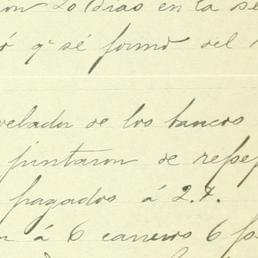 on 20 dias en la se
ó qe sé formó del
velador de los bancos
juntaron de
pagados á 2.7.
n á 6 carreros 6